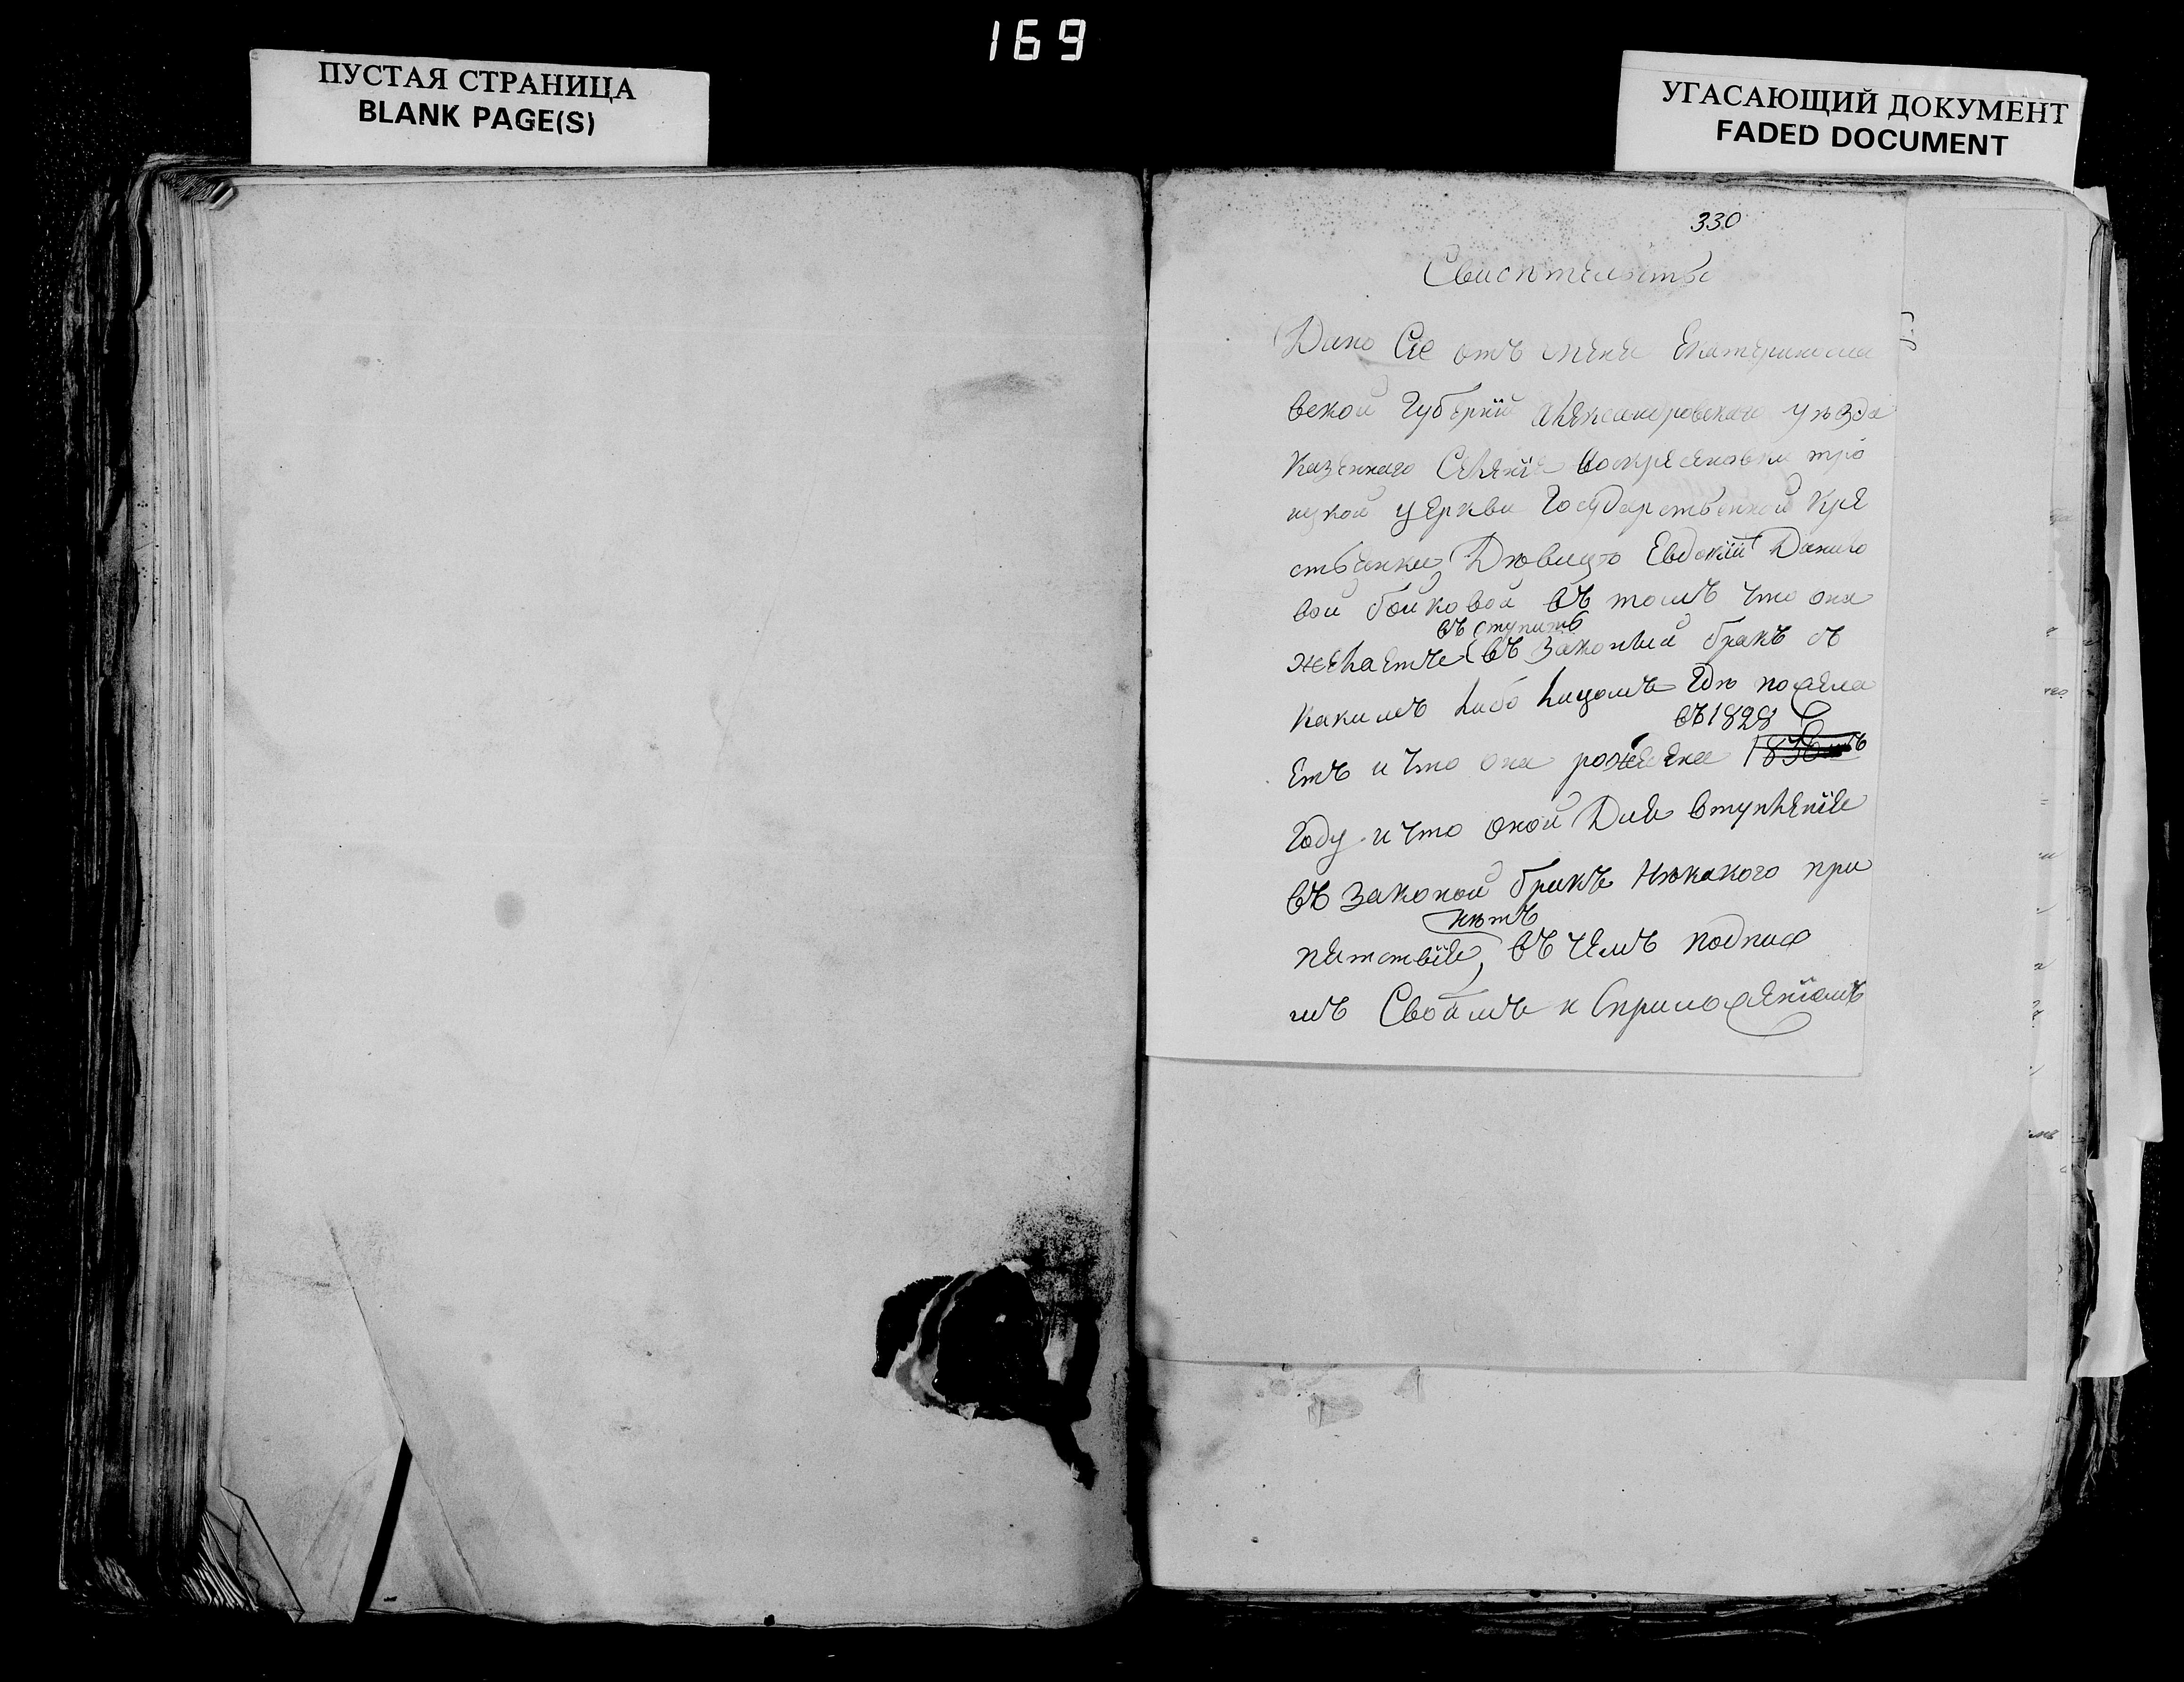 169
ПУСТАЯ СТРАНИЦА
BLANK PAGE(S)
УГАСАЮЩИЙ ДОКУМЕНТ
FADED DOCUMENT
330
Дано Сіе отъ меня Екатериносла
вской Губерніи Александровскаго уѣзда
Казеннаго Селенія Воскресеновки тро
ицкой церкви Государственной Кре
стьянки Дѣвицѣ Евдокіи Данило
вой бойковой въ томъ что она
въ ступить
желаетъ въ Законый бракъ съ
какимъ либо лицомъ гдѣ пожела
въ 1828
етъ и что она рождена 1830мъ
году и что оной Для вступленія
въ Законой бракъ Нѣкакого при
нѣтъ
пятствія, въ чемъ подпись
мъ Своимъ и Сприложеніомъ